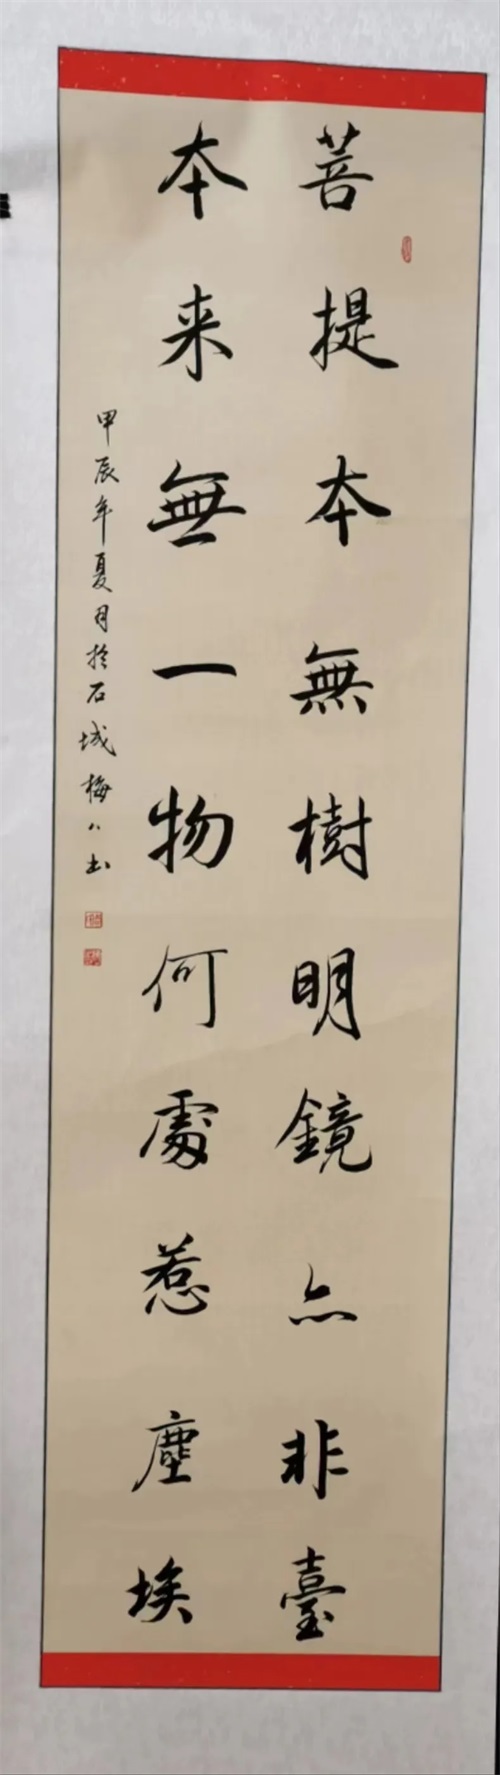 菩提本無樹明鏡亦非臺
本来無一物何處惹塵埃
甲辰年夏月於石城梅八书